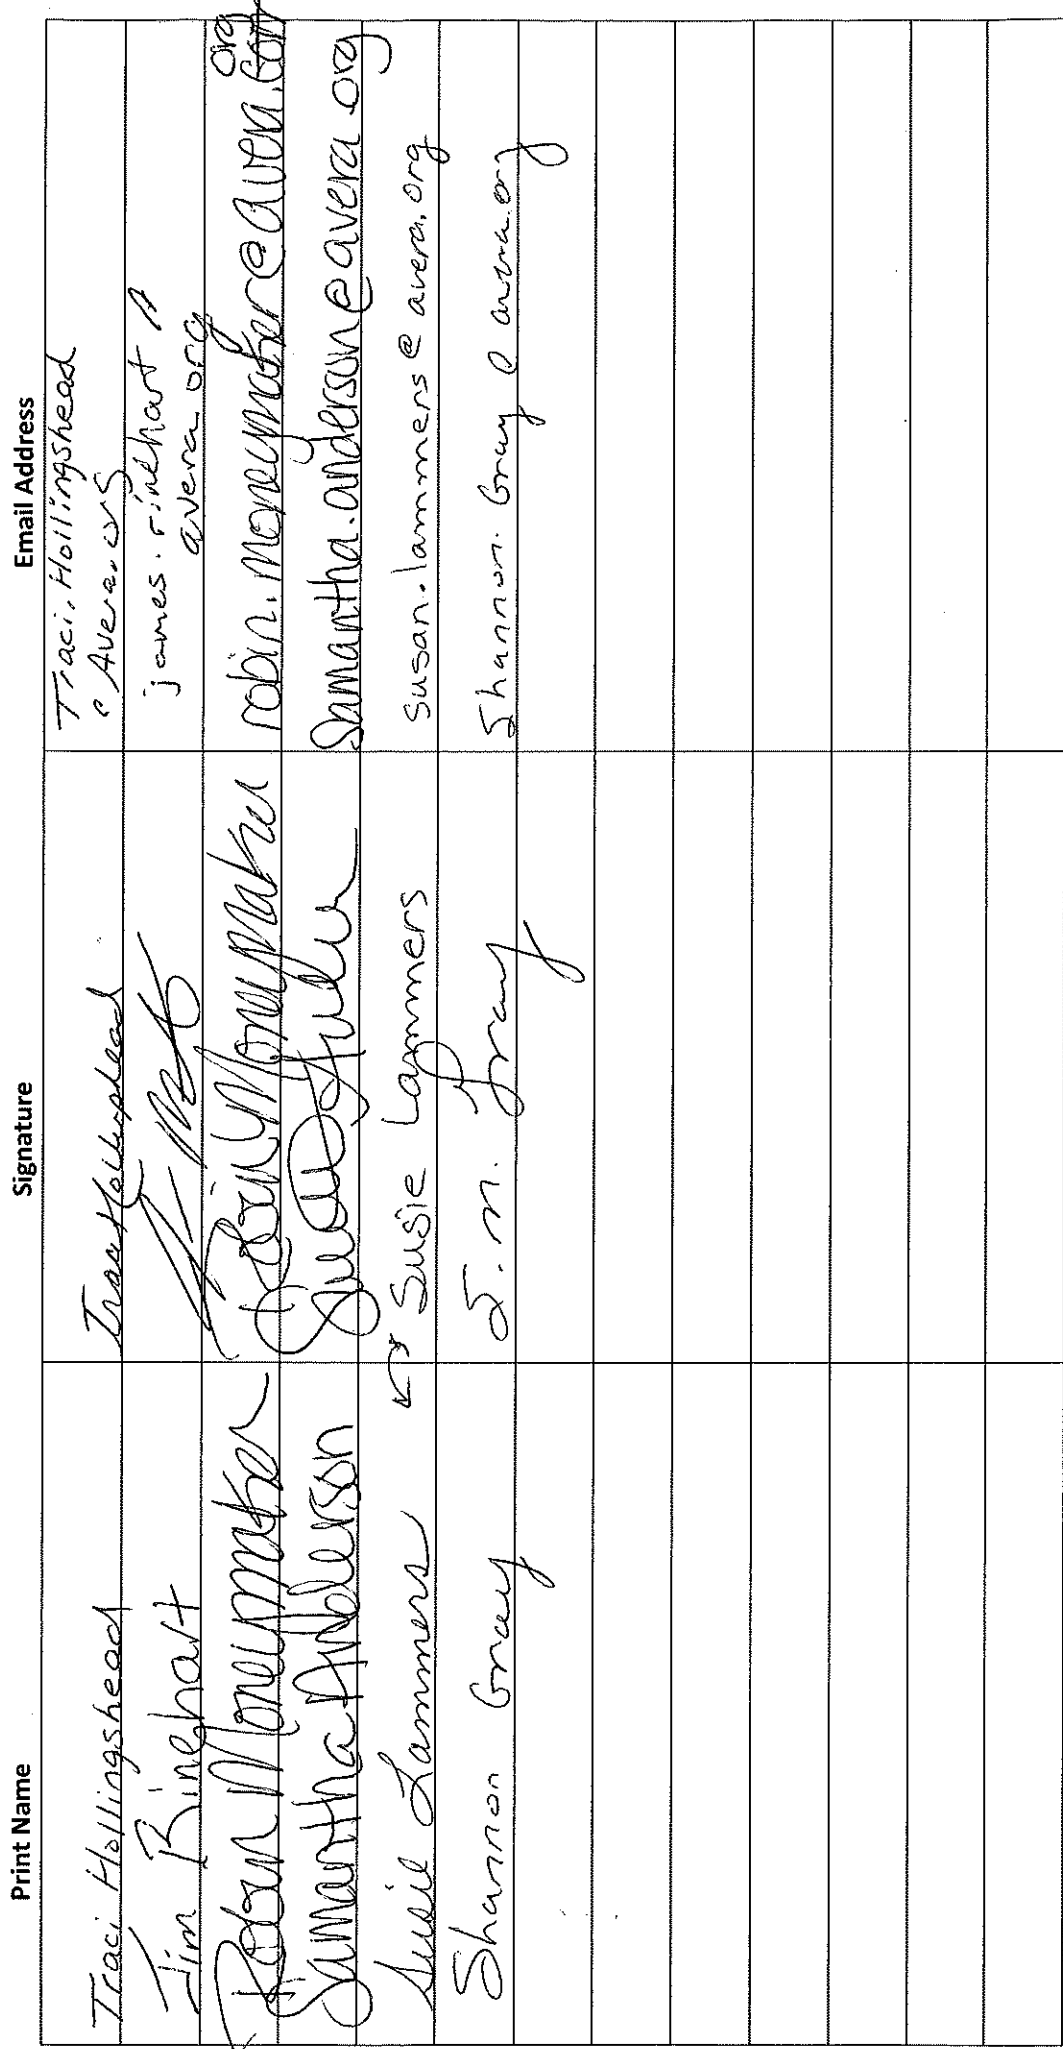 Print Name Signature Email Address
Traci Hollingshead Traci Hollingshead Traci.Hollingshead
@Avera.org
Jim Rinehart james.rinehart
avera.org
Robin Moneymaker Robin Moneymaker robin.moneymaker@avera.com
org
Samantha Anderson samantha.anderson@avera.org
Susie Lammers Susie Lammers susan.lammers@avera.org
Shannon Gray S.M. Gray Shannon.Gray@avera.org